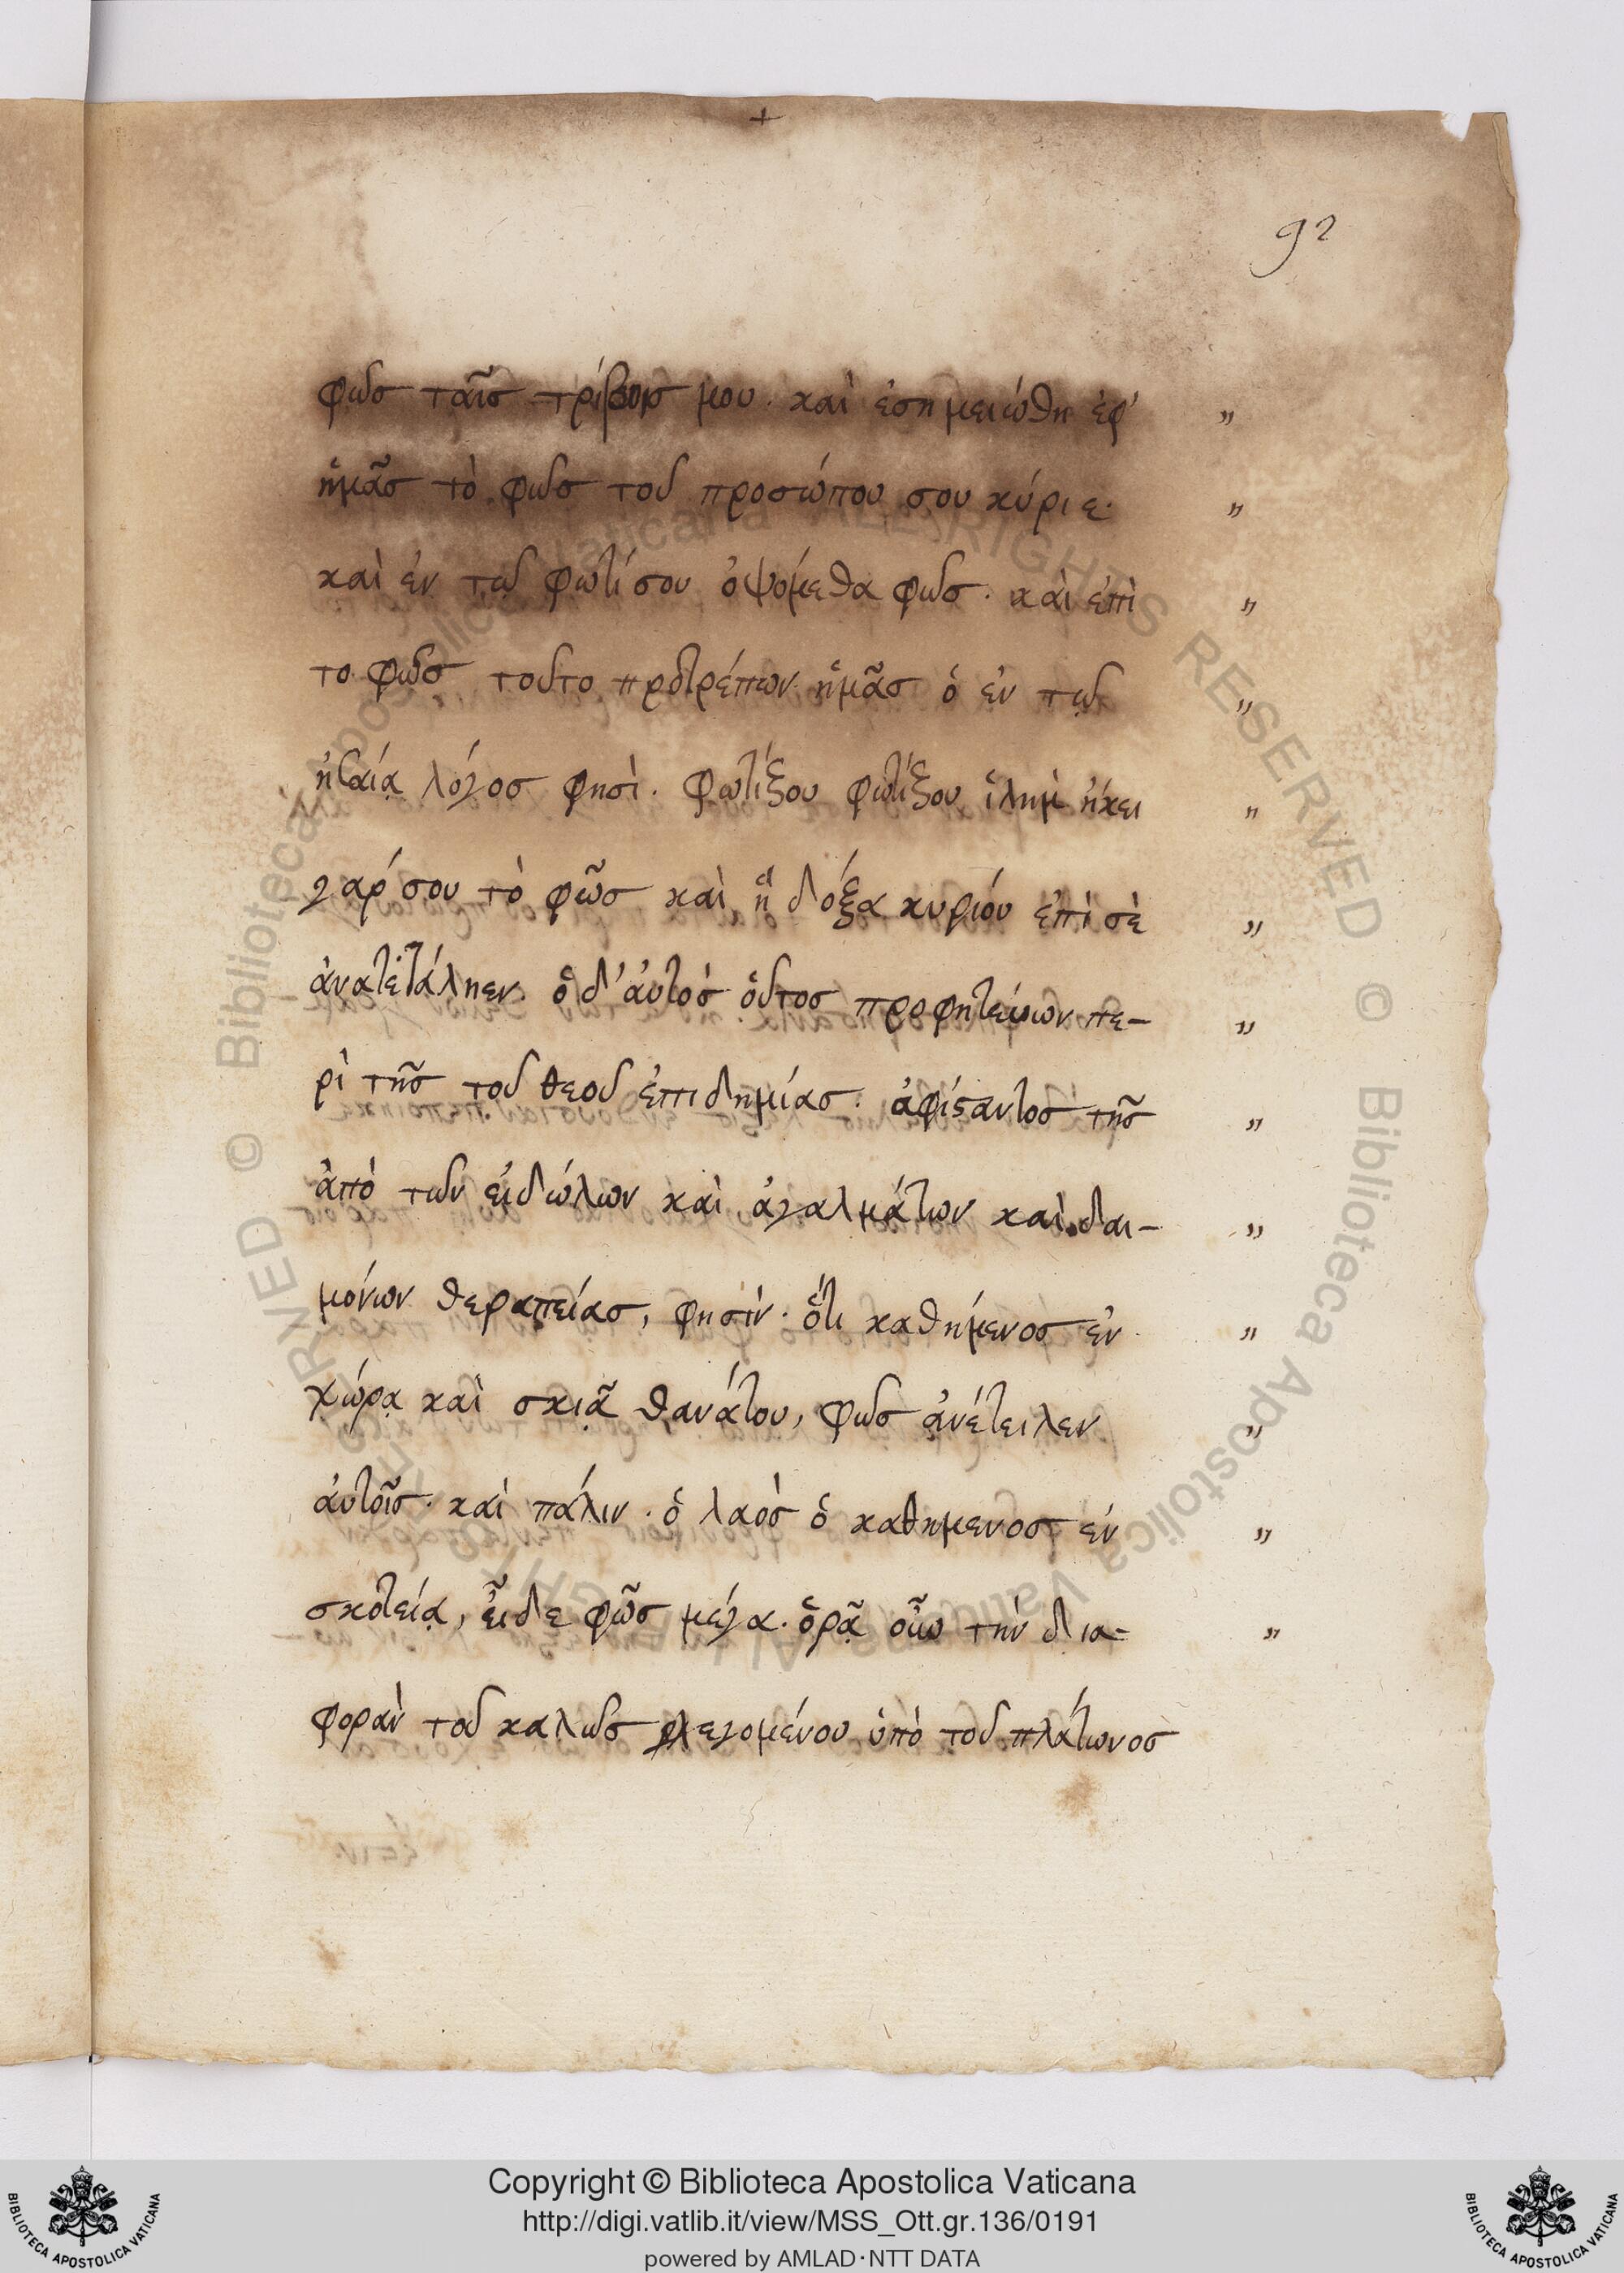 +
92
φῶσ ταῖσ τρίβοισ μου. καὶ ἐσημειώθη ἐφ' "
ἡμᾶσ τὸ φῶσ τοῦ προσώπου σου κύριε. "
καὶ ἐν τῷ φωτί σου ὀψόμεθα φῶσ. καὶ ἐπὶ "
το φῶσ τοῦτο προτρέπων ἡμᾶσ ὁ ἐν τῷ "
ἡσαΐᾳ λόγοσ φησὶ. φωτίζου φωτίζου ἱλημ ἥκει "
γάρ σου τὸ φῶσ καὶ ἡ δόξα κυρίου ἐπὶ σὲ "
ἀνατέταλκεν. ὁ δ' ἀυτὸσ οὗτοσ προφητεύων πε- "
ρὶ τῆσ τοῦ θεοῦ ἐπιδημίασ. ἀφίσαντοσ τῆσ "
ἀπὸ τῶν εἰδώλων καὶ ἀγαλμάτων καὶ δαι- "
μόνων θεραπείασ, φησὶν. ὅτι καθήμενοσ ἐν "
χώρᾳ καὶ σκιᾷ θανάτου, φῶσ ἀνέτειλεν "
ἀυτοῖσ. καὶ πάλιν. ὁ λαὸσ ὁ καθημενοσ ἐν "
σκοτείᾳ, εἶδε φῶσ μέγα. ὁρᾷ οὖν τὴν δια- "
φορὰν τοῦ καλῶσ λεγομένου ὑπὸ τοῦ πλάτωνοσ
Copyright © Biblioteca Apostolica Vaticana
http://digi.vatlib.it/view/MSS_Ott.gr.136/0191
powered by AMLAD·NTT DATA
BIBLIOTECA APOSTOLICA VATICANA
BIBLIOTECA APOSTOLICA VATICANA